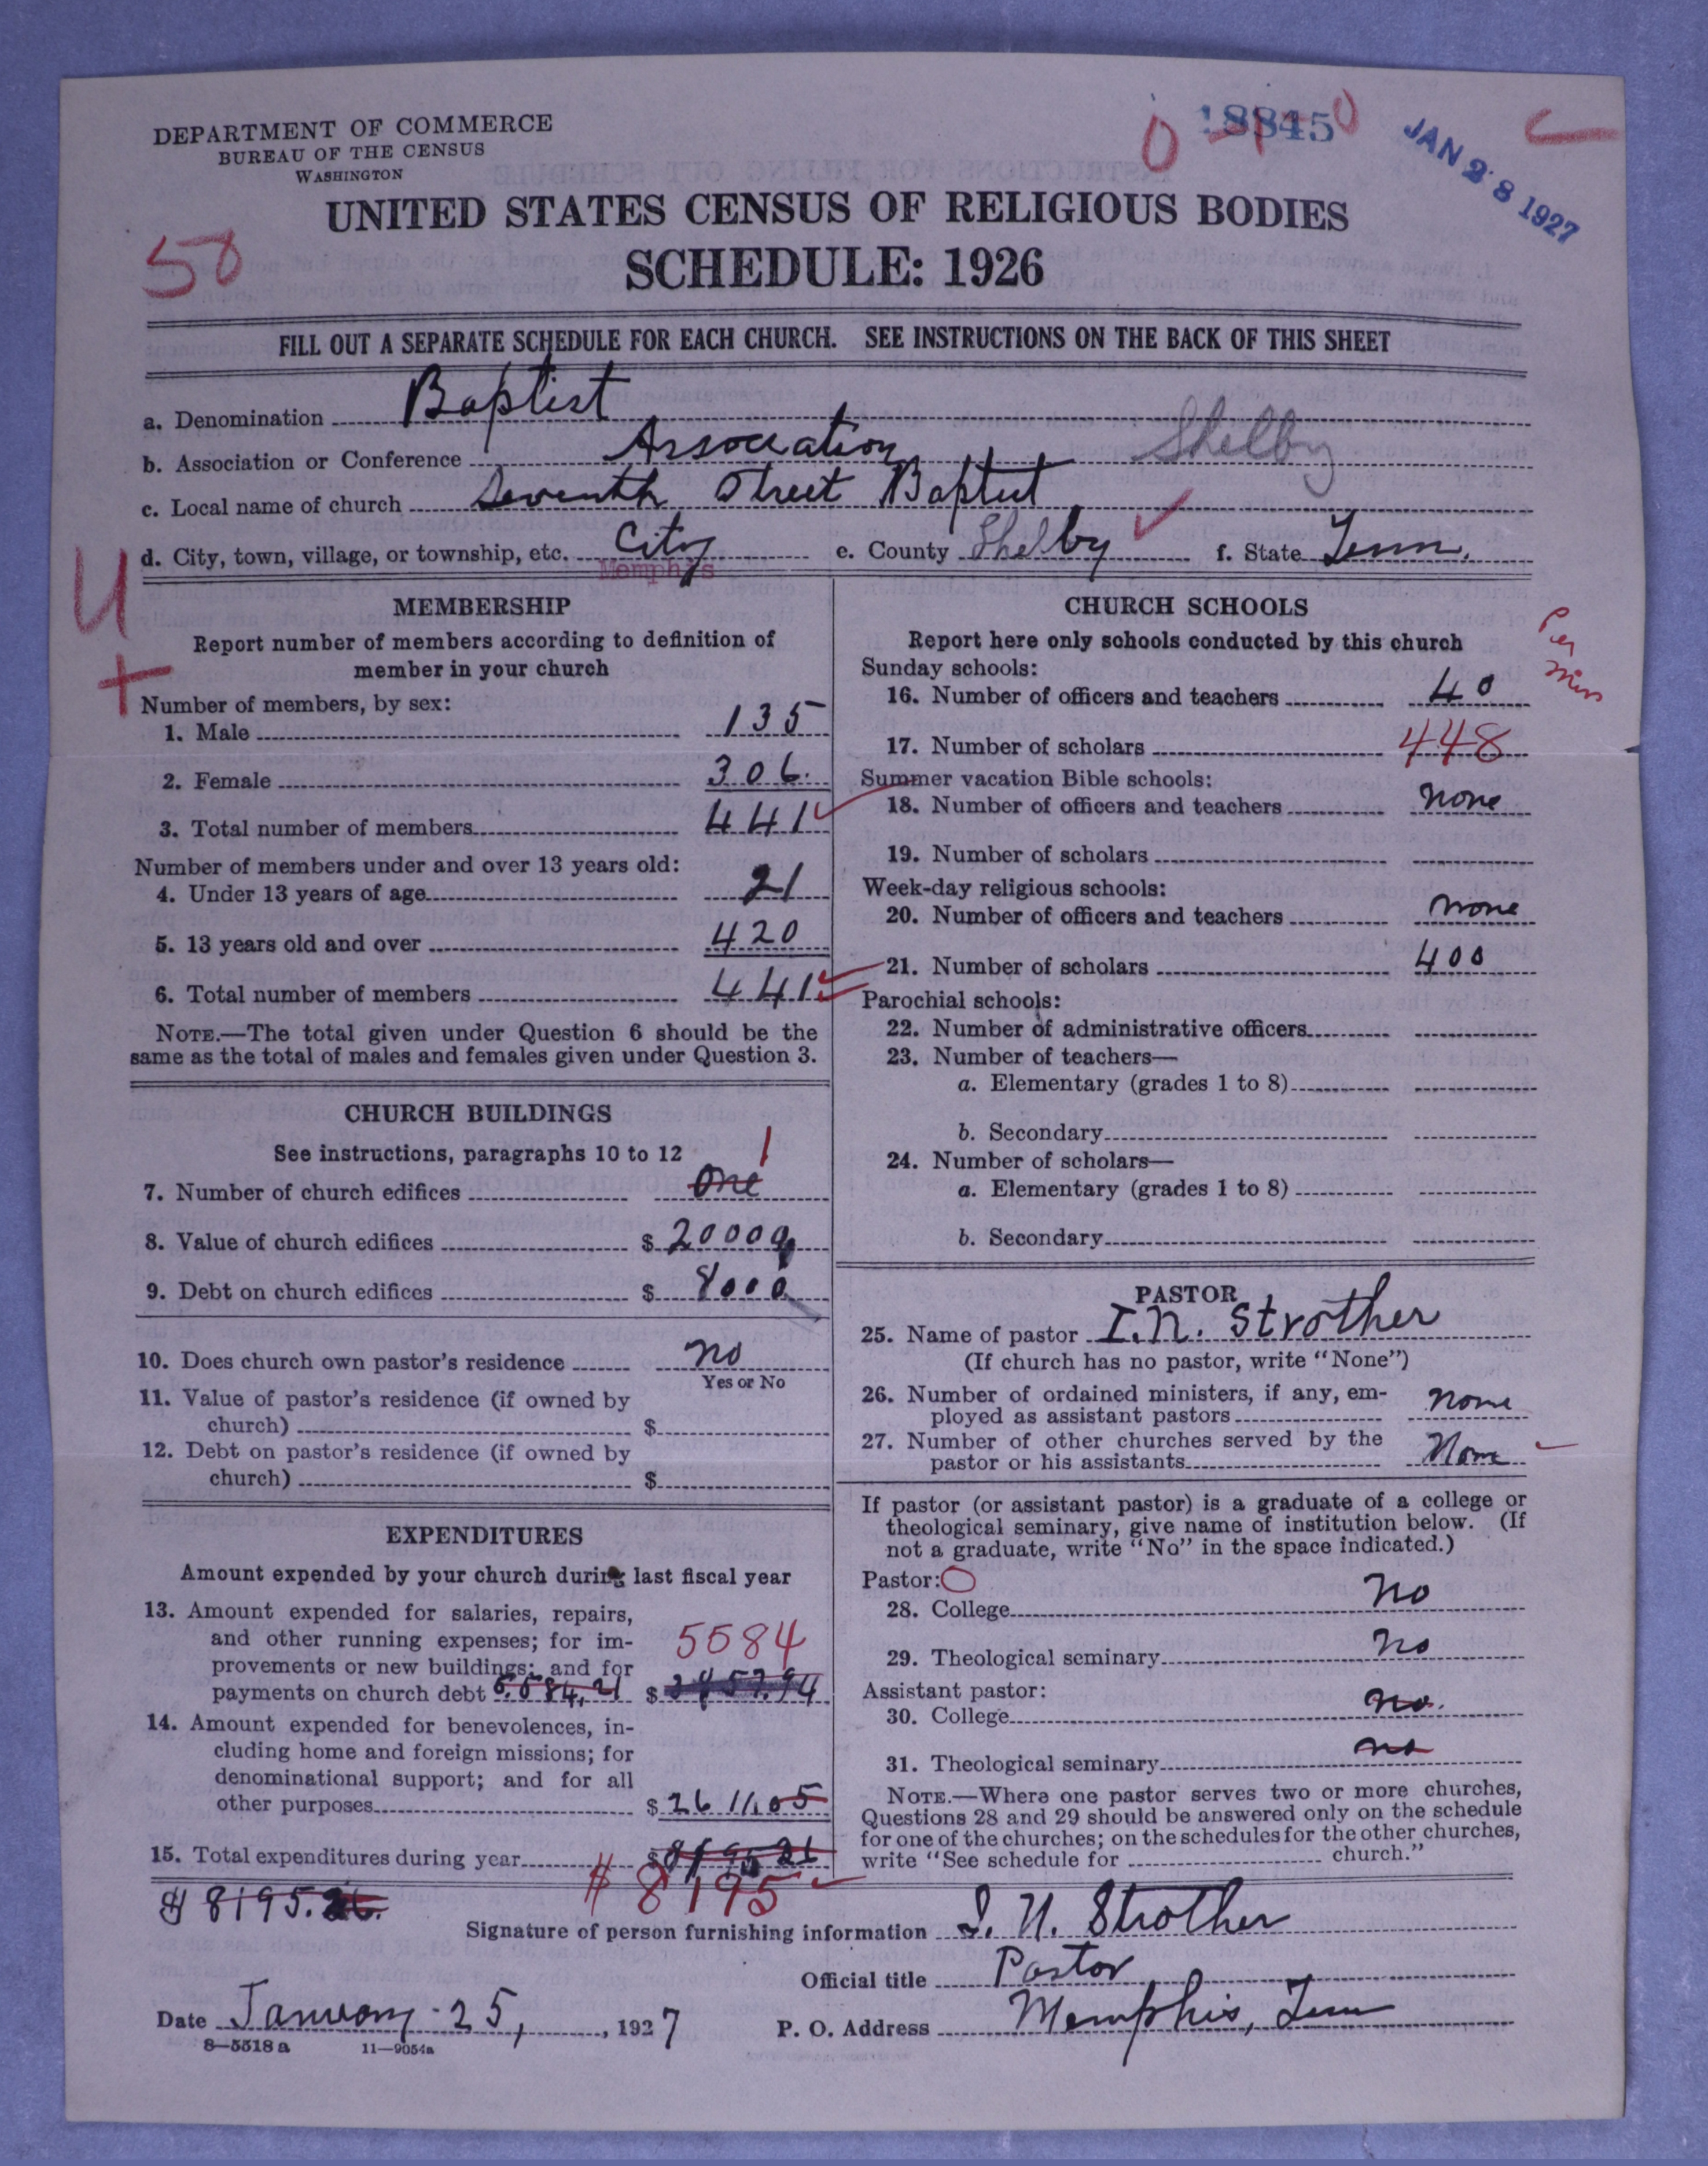 DEPARTMENT OF COMMERCE
BUREAU OF THE CENSUS
WASHINGTON
0 18845 0
JAN 28 1927
UNITED STATES CENSUS OF RELIGIOUS BODIES
SCHEDULE: 1926
50
FILL OUT A SEPARATE SCHEDULE FOR EACH CHURCH. SEE INSTRUCTIONS ON THE BACK OF THIS SHEET
a. Denomination Baptist
b. Association or Conference Association Shelby
c. Local name of church Seventh Street Baptist
d. City, town, village, or township, etc. City e. County Shelby f. State Tenn.
Memphis
U
+
MEMBERSHIP
Report number of members according to definition of
member in your church
Number of members, by sex:
1. Male 135
2. Female 306.
3. Total number of members 441
Number of members under and over 13 years old:
4. Under 13 years of age 21
5. 13 years old and over 420
6. Total number of members 441
NOTE.—The total given under Question 6 should be the
same as the total of males and females given under Question 3.
CHURCH BUILDINGS
See instructions, paragraphs 10 to 12 1
7. Number of church edifices One
8. Value of church edifices $ 20000
9. Debt on church edifices $ 8000
10. Does church own pastor's residence no
Yes or No
11. Value of pastor's residence (if owned by
church) $
12. Debt on pastor's residence (if owned by
church) $
EXPENDITURES
Amount expended by your church during last fiscal year
13. Amount expended for salaries, repairs,
and other running expenses; for im-
5584
provements or new buildings; and for
payments on church debt 5.584,21 $
14. Amount expended for benevolences, in-
cluding home and foreign missions; for
denominational support; and for all
other purposes $ 2611.05
15. Total expenditures during year $ 8195 26
$ 8195
$ 8195.26.
CHURCH SCHOOLS
Report here only schools conducted by this church
Per
Sunday schools:
16. Number of officers and teachers 40
17. Number of scholars 448
Summer vacation Bible schools:
18. Number of officers and teachers none
19. Number of scholars
Week-day religious schools:
20. Number of officers and teachers none
21. Number of scholars 400
Parochial schools:
22. Number of administrative officers
23. Number of teachers—
a. Elementary (grades 1 to 8)
b. Secondary
24. Number of scholars—
a. Elementary (grades 1 to 8)
b. Secondary
PASTOR
25. Name of pastor I.N. Strother
(If church has no pastor, write "None")
26. Number of ordained ministers, if any, em-
ployed as assistant pastors none
27. Number of other churches served by the
pastor or his assistants None
If pastor (or assistant pastor) is a graduate of a college or
theological seminary, give name of institution below. (If
not a graduate, write "No" in the space indicated.)
Pastor: O
28. College no
29. Theological seminary no
Assistant pastor:
30. College no.
31. Theological seminary no
NOTE.—Where one pastor serves two or more churches,
Questions 28 and 29 should be answered only on the schedule
for one of the churches; on the schedules for the other churches,
write "See schedule for church."
Signature of person furnishing information I. N. Strother
Official title Pastor
Date January 25, , 1927 P. O. Address Memphis, Tenn
8—5518 a 11—9054a